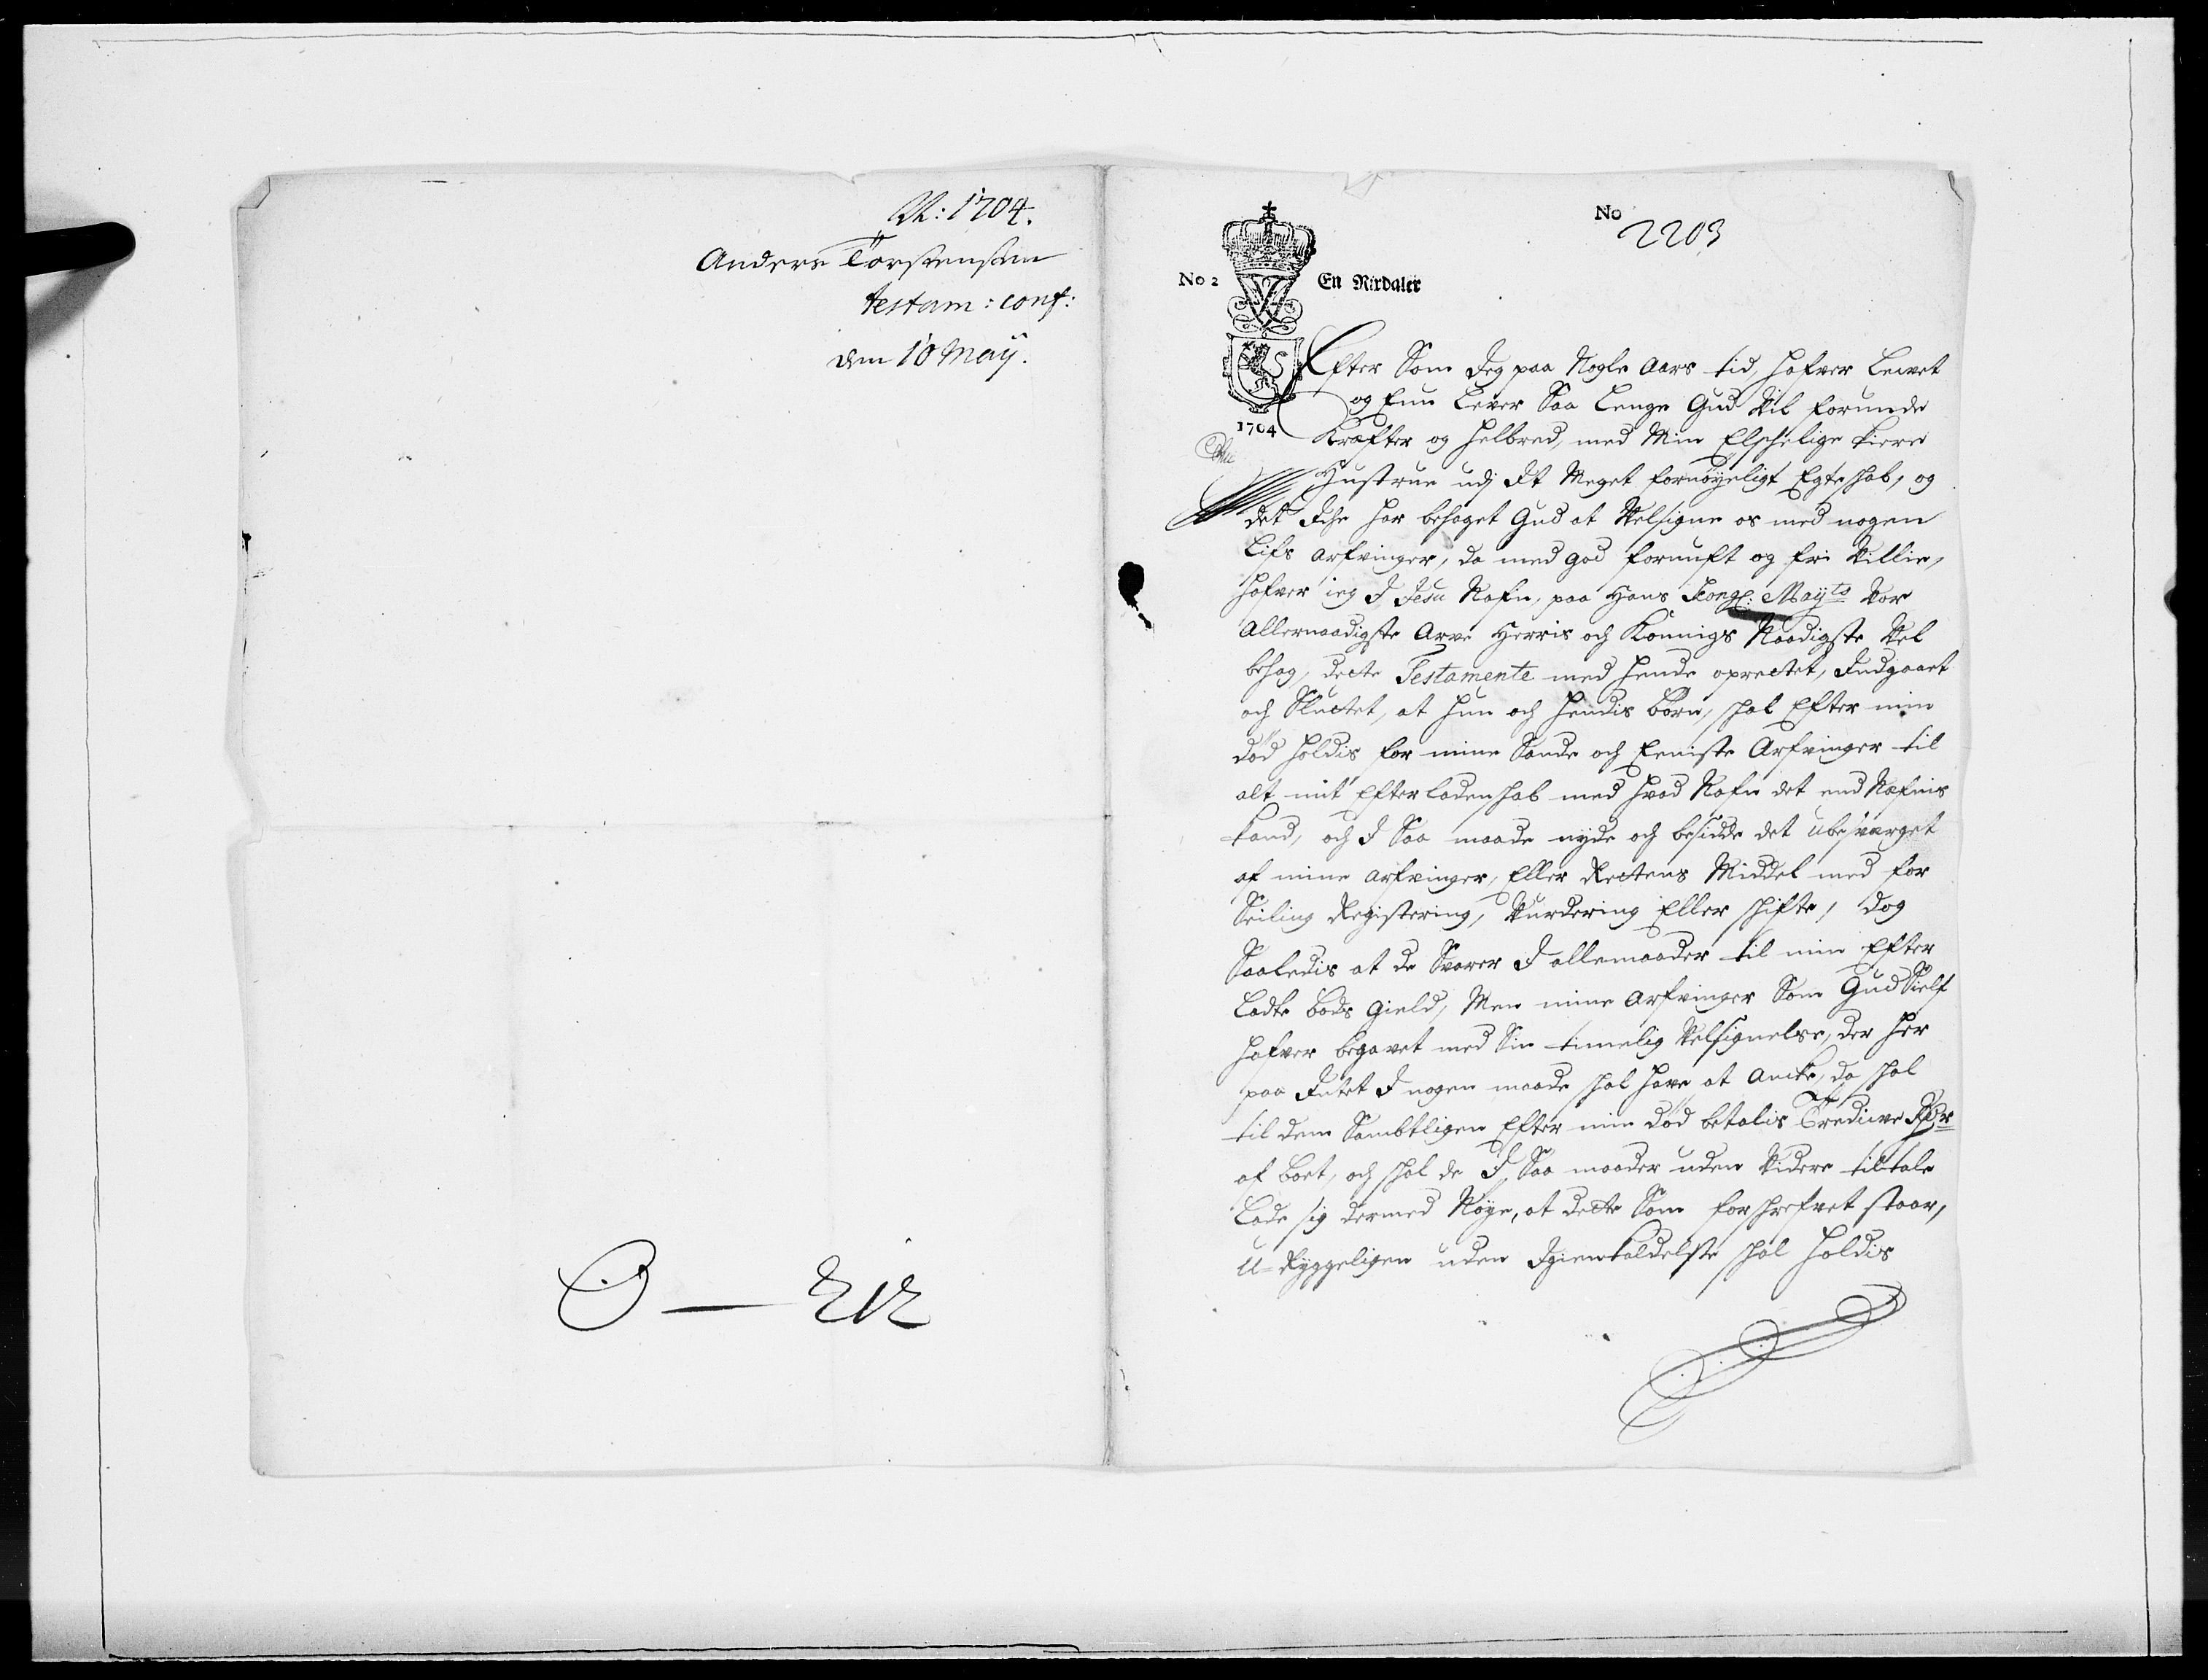 A: 1704.
Anders Torstensøn
testam: conf:
dem 10 Maÿ.
212
No
2203
No 2
En Rixdaler
1704
Efter Som Jeg paa Nogle Aars tid, hafver Levet
og Enn Lever Saa Lenge Gud Vil forunde
Kræfter og Helbred, med Min Elschelige kiere
Hustrue udj Et Meget fornøyeligt Egteschab, og
det Iche har behaget Gud at Velsigne os med nogen
Lifs arfvinger, da med god fornuft og fri Villie,
hafver ieg I Jesu Nafn, paa Hans Kongl: Maÿts Vor
Allernaadigste Arve Herris och Konnigs Naadigste Vel
behag, dette Testamente med hende oprettet, Indgaaet
och Sluttet, at hun och hendis børn, schal Efter min
død holdis for mine Sande och Eeniste Arfvinger til
alt mit Efterladenschab med hvad Nafn det end Næfnis
kand, och I Saa maade nyde och besidde det ubesverget
af mine arfvinger, Eller Rettens Middel med for
Seiling Registering, Vurdering Eller schifte, dog
Saaledis at de Svarer I allemaader til min Efter
Ladte bods gield, Men mine arfvinger Som Gud Sielf
hafver begavet med Sin timelig Velsignelse, der her
paa Intet I nogen maade schal have at Ancke, da schal
til dem Sambtligen Efter min død betalis Tredive Rdr
af boet, och schal de I Saa maader uden Videre tiltale
Lade sig dermed Nøye, at dette Som forschrefvet staar,
U-Ryggeligen uden Igienkaldelse schal holdis